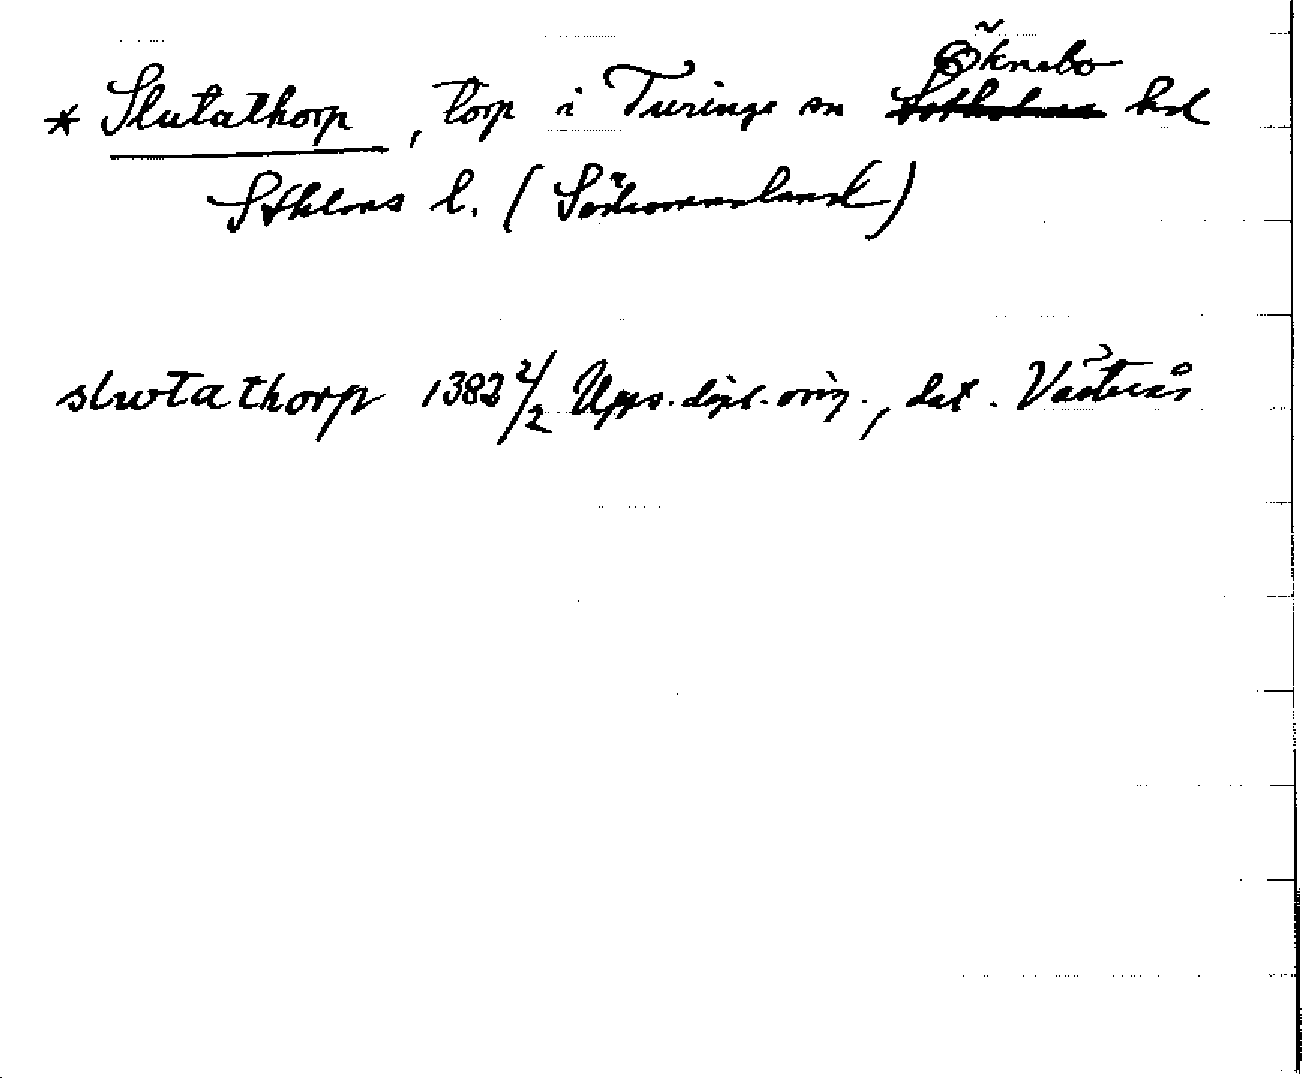 * Slutathorp, torp i Turinge sn Öknebo hd
Sthlms l. (Södermanland)
slwtathorp 1382 2/2 Upps. dipl. orig., dat. Västerås